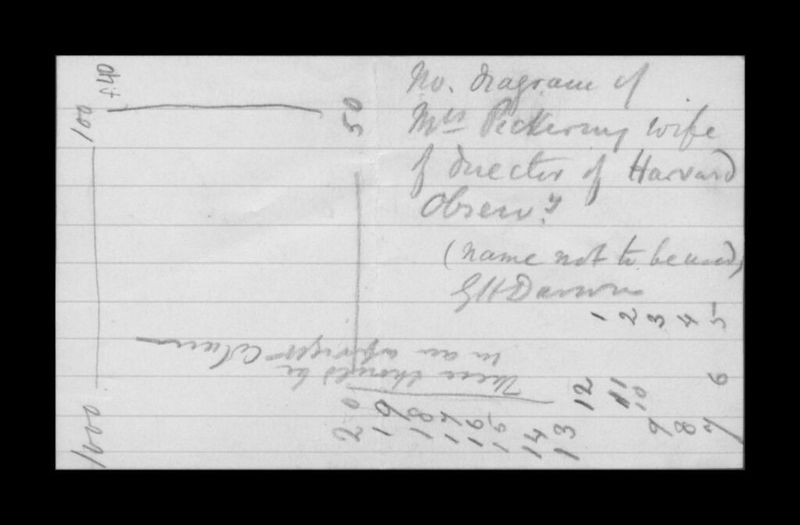 No. diagram of
Mrs Pickering wife
of director of Harvard
Observy
(name not to be used)
GHDarwin
1
2
3
4
5
6
7
8
9
10
11
12
13
14
15
16
17
18
19
20
These should be
in an upright column
50
100
+40
1000